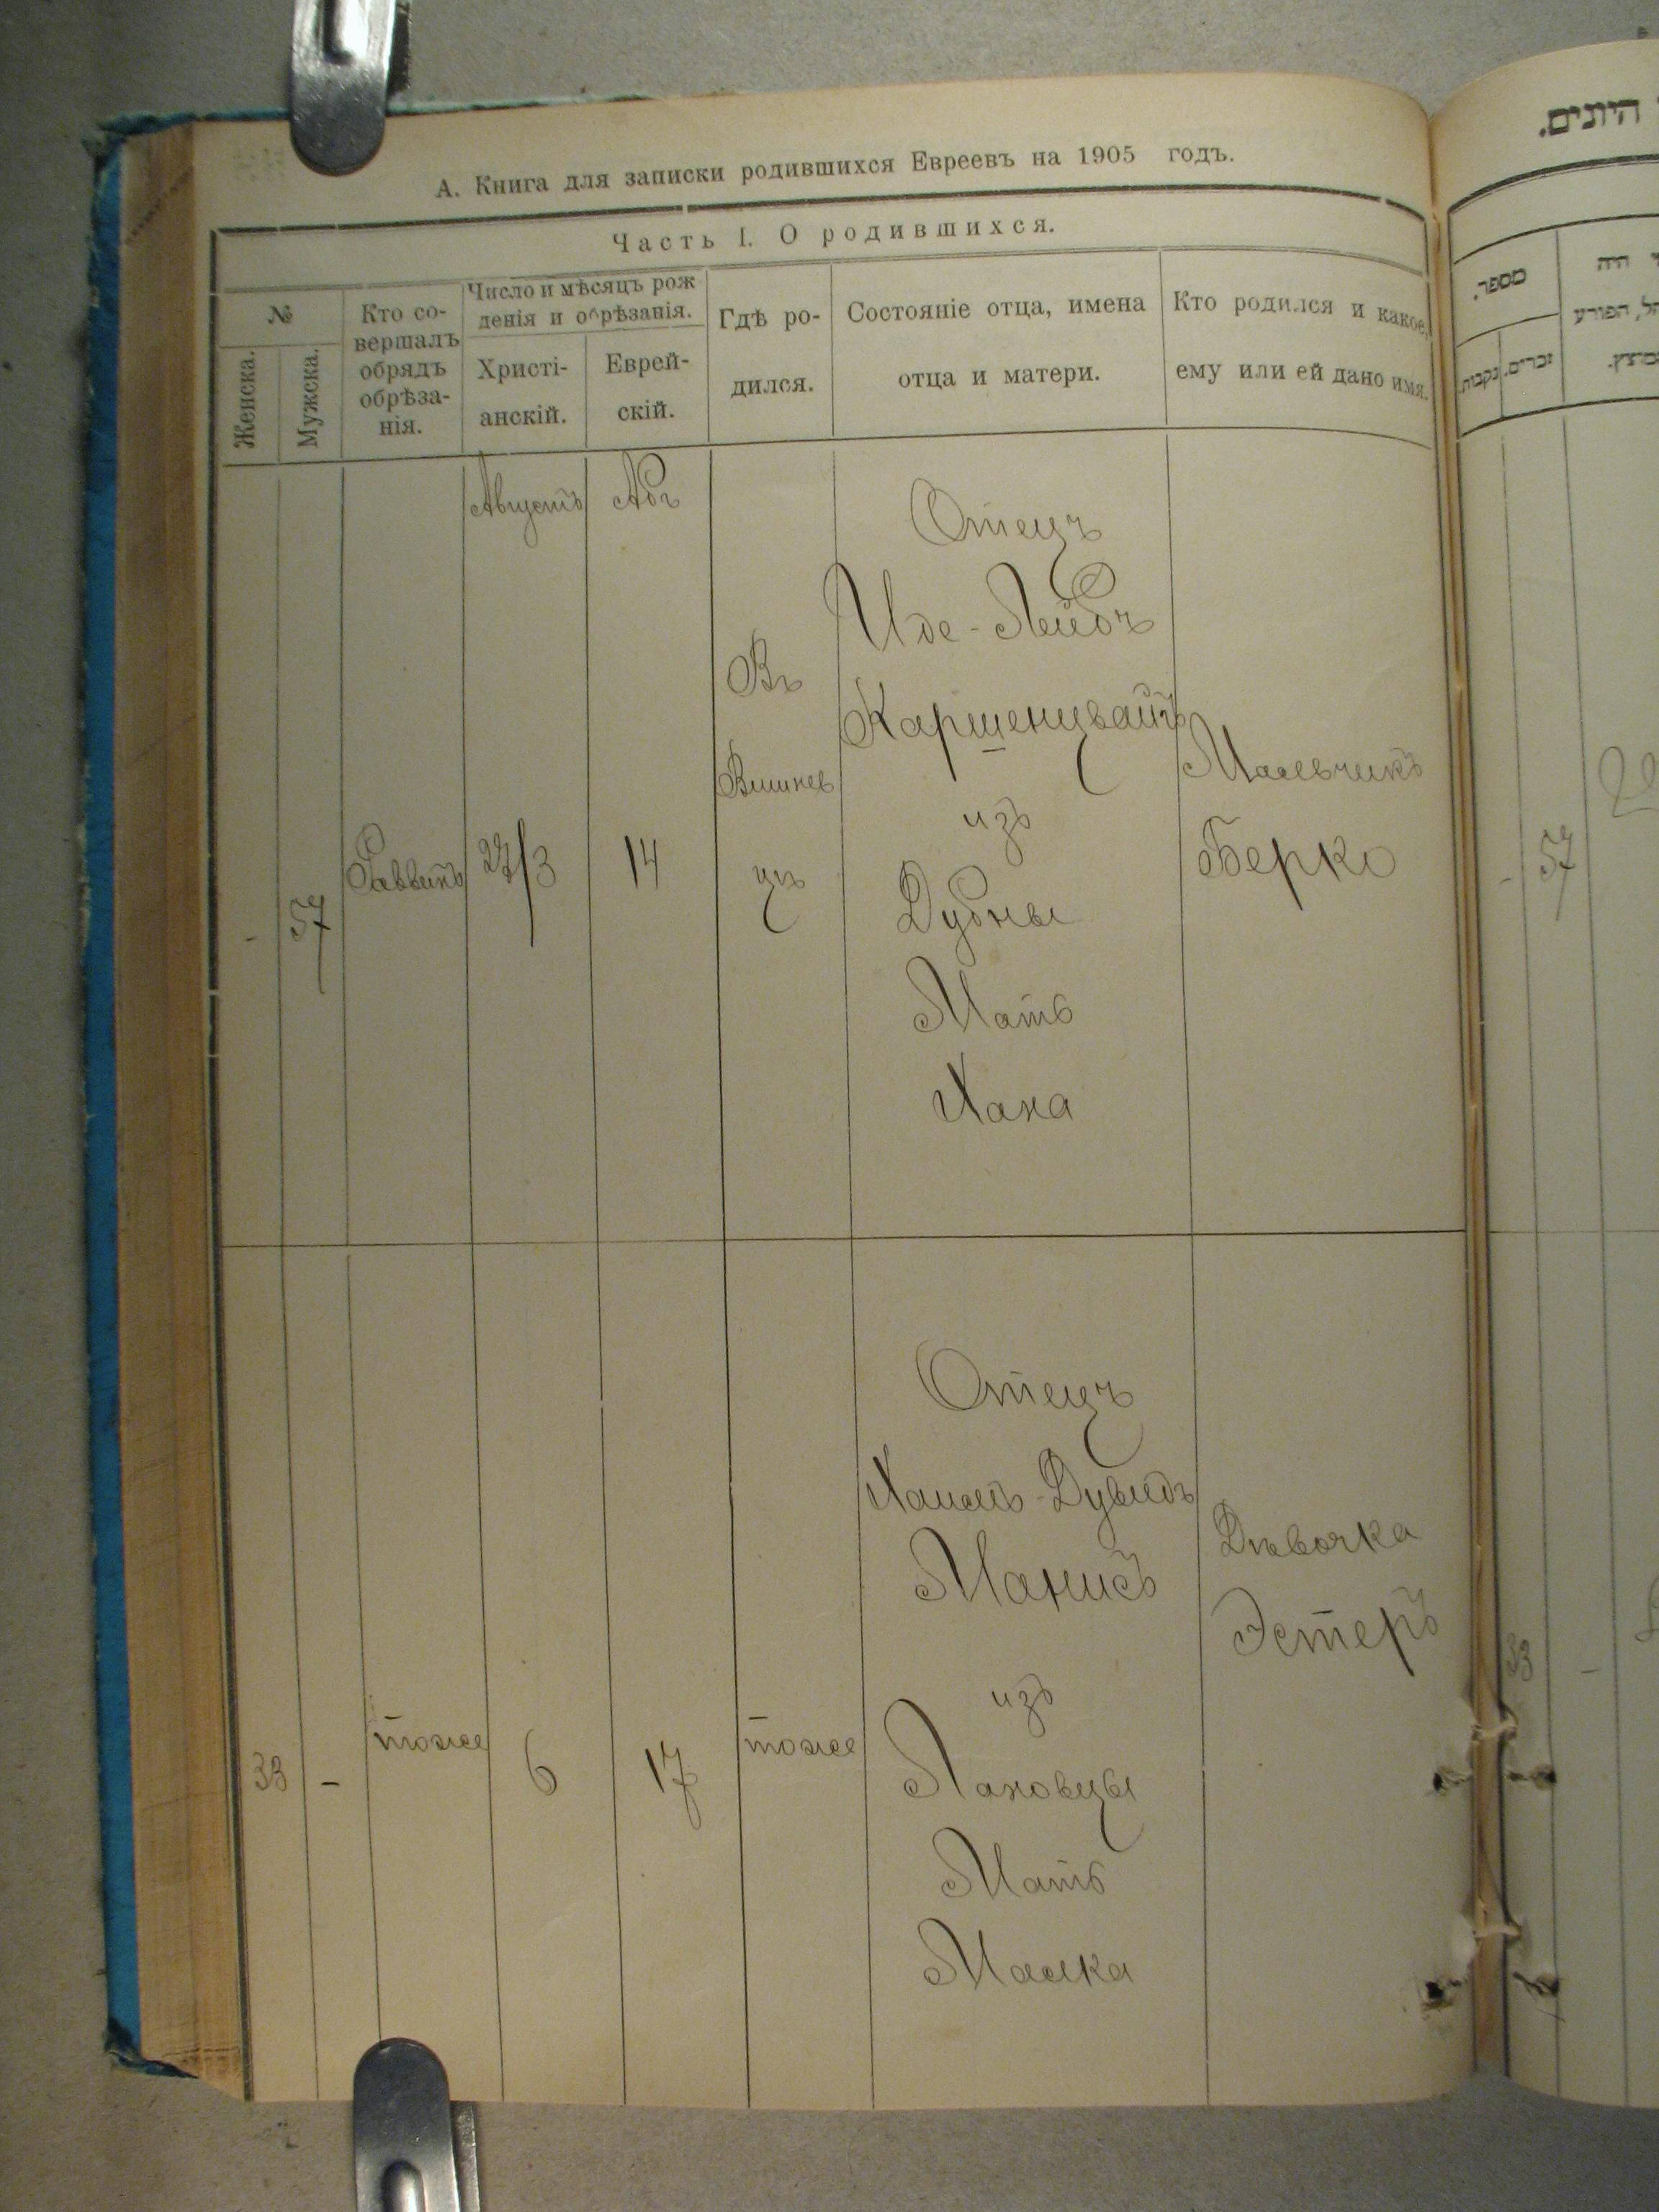 А. Книга для записки родившихся Евреевъ на 1905 годъ.
Часть I. О родившихся.
№
Женска.
Мужска.
Кто со-
вершалъ
обрядъ
обрѣза-
нія.
Число и мѣсяцъ рож
денія и обрѣзанія.
Христі-
анскій.
Еврей-
скій.
Гдѣ ро-
дился.
Состояніе отца, имена
отца и матери.
Кто родился и какое,
ему или ей дано имя.
-
57
Раввинъ
Августъ
27/3
Абъ
14
Въ
Вишнев
цѣ
Отецъ
Иде-Лейбъ
Каршенцвайгъ
изъ
Дубны
Мать
Хана
Мальчикъ
Берко
33
-
тоже
6
17
тоже
Отецъ
Хаимъ-Дувидъ
Манисъ
изъ
Лановцы
Мать
Малка
Дѣвочка
Эстеръ
היונים.
מספר.
זכרים.
נקבות.
היה
הפורע
-
57
33
-